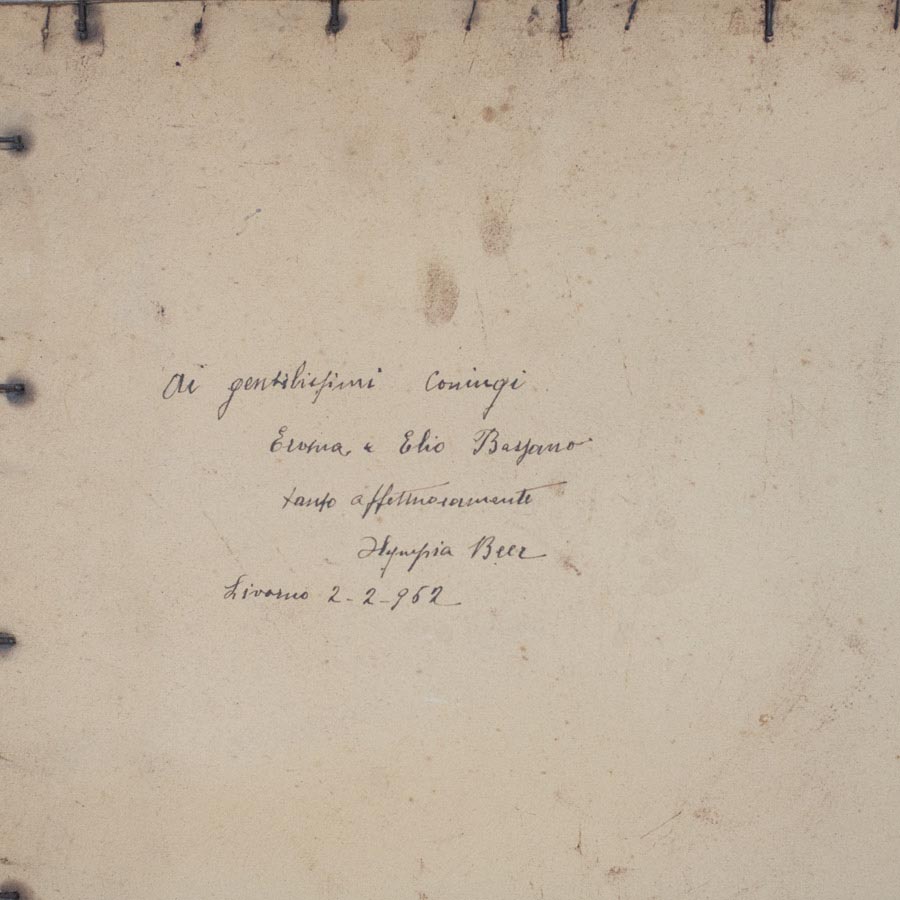 Ai gentilissimi Coniugi
e Elio Bassano
tanto affettuosamente
Olympia Beer
Livorno 2-2-962